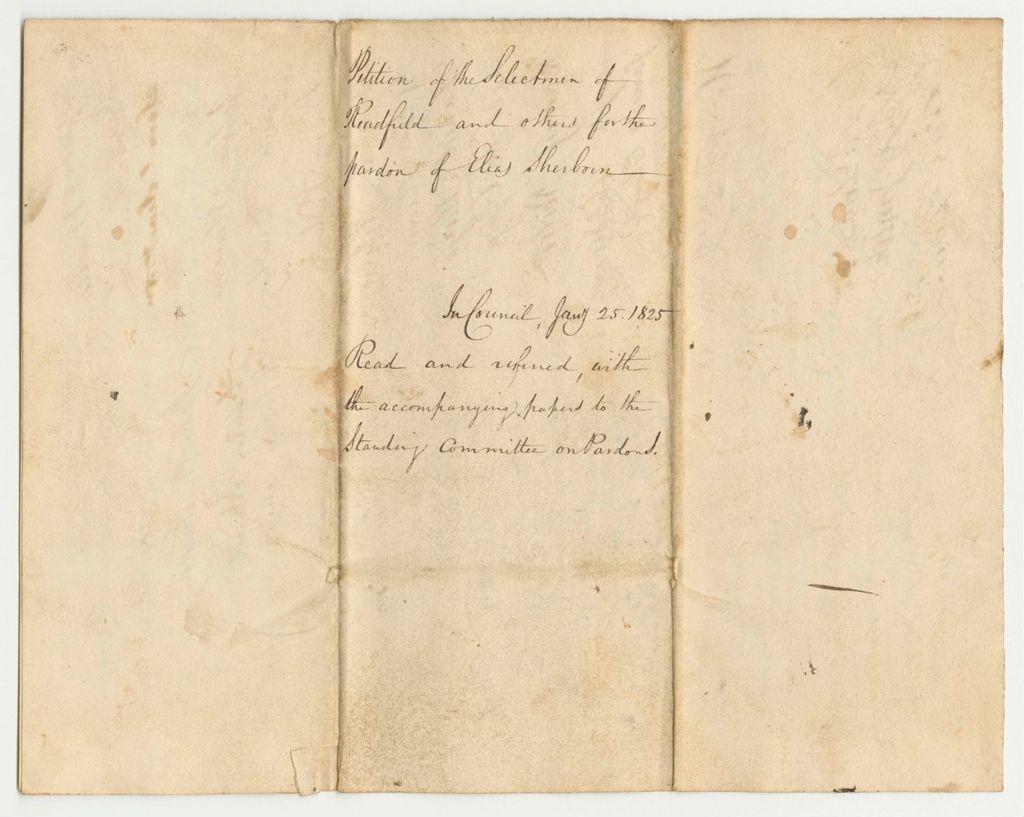 Petition of the Selectmen of
Readfield and others for the
pardon of Elias Sherborn
In Council, Jany 25. 1825
Read and referred, with
the accompanying papers to the
Standing Committee on Pardons.